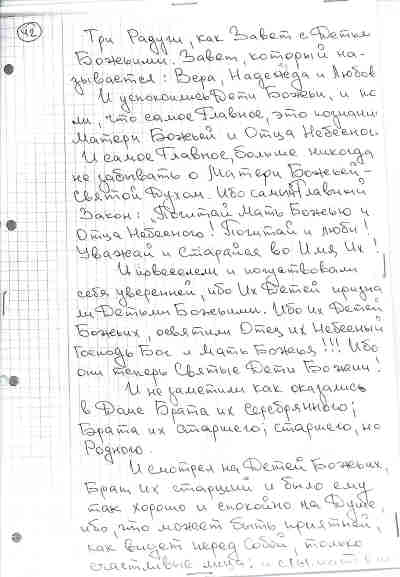 42
Три Радуги, как Завет с Детьми
Божьими. Завет, который на-
зывается: Вера, Надежда и Любов
И успокоились Дети Божьи, и по
ли, что самое Главное, это познани
Матери Божьей и Отца Небесног.
И самое Главное, больше никогда
не забывать о Матери Божьей -
Святой Духом. Ибо самый Главный
Закон: Почитай Мать Божью и
Отца Небесного! Почитай и люби!
Уважай и Старайся во Имя Их!
И повеселели и почувствовали
себя уверенней, ибо Их Детей призна
ли Детьми Божьими. Ибо их Детей
Божьих, освятили Отец их Небесный
Господь Бог и Мать Божья!!! Ибо
они теперь Святые Дети Божии!
И не заметили как оказались
в Доме Брата их Серебрянного;
Брата их старшего; старшего, но
Родного.
И смотрел на Детей Божьих,
Брат их старший и было ему
так хорошо и спокойно на Душе,
ибо, что может быть приятней,
как видеть перед Собой, только
счастливые лица: и